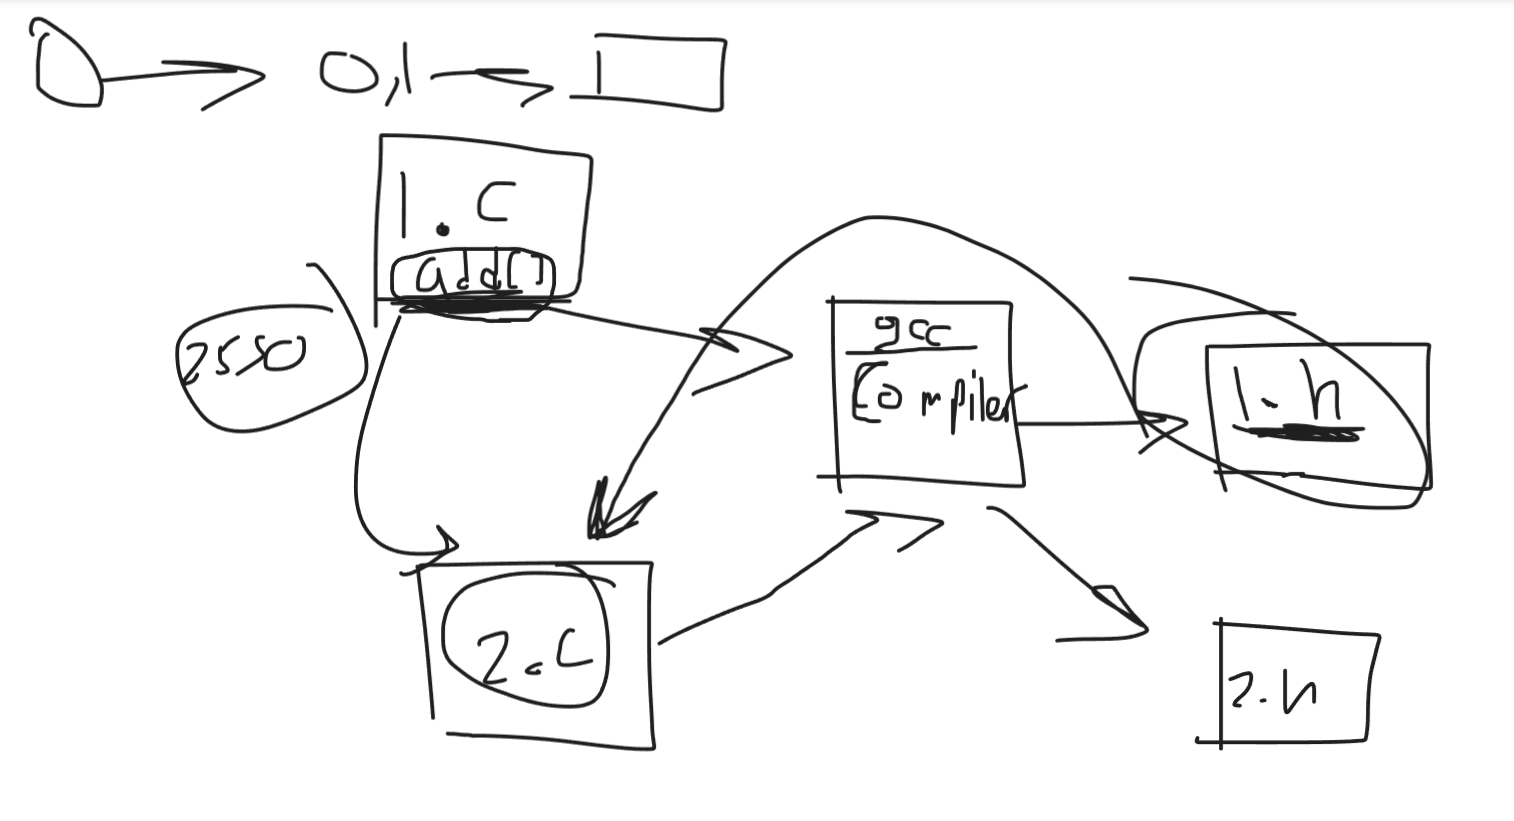 0,1
1.C
add()
2550
gcc
Compiler
1.h
2.C
2.h